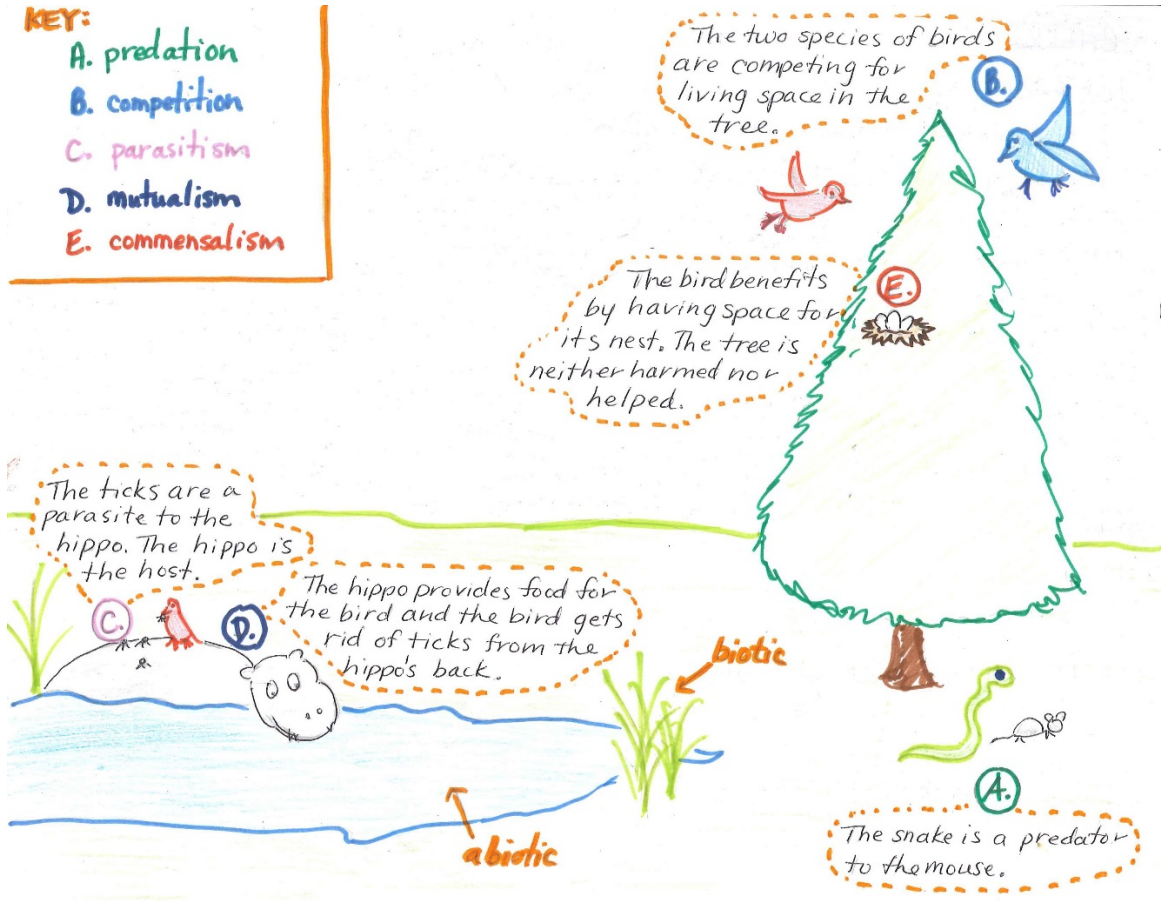 KEY:
A. predation
B. competition
C. parasitism
D. mutualism
E. commensalism
The two species of birds
are competing for
living space in the
tree.
B.
The bird benefits
by having space for
its nest. The tree is
neither harmed nor
helped.
E.
The ticks are a
parasite to the
hippo. The hippo is
the host.
C.
D.
The hippo provides food for
the bird and the bird gets
rid of ticks from the
hippo's back.
biotic
abiotic
A.
The snake is a predator
to the mouse.